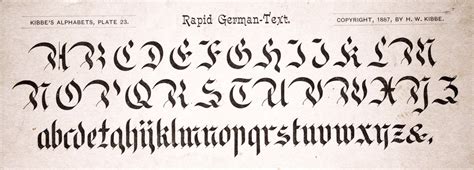 KIBBE'S ALPHABETS, PLATE 23. Rapid German-Text. COPYRIGHT, 1887, BY H. W. KIBBE.
A B C D E F G H I J K L M
N O P Q R S T U V W X Y Z
abcdefghijklmnopqrstuvwxyz&.